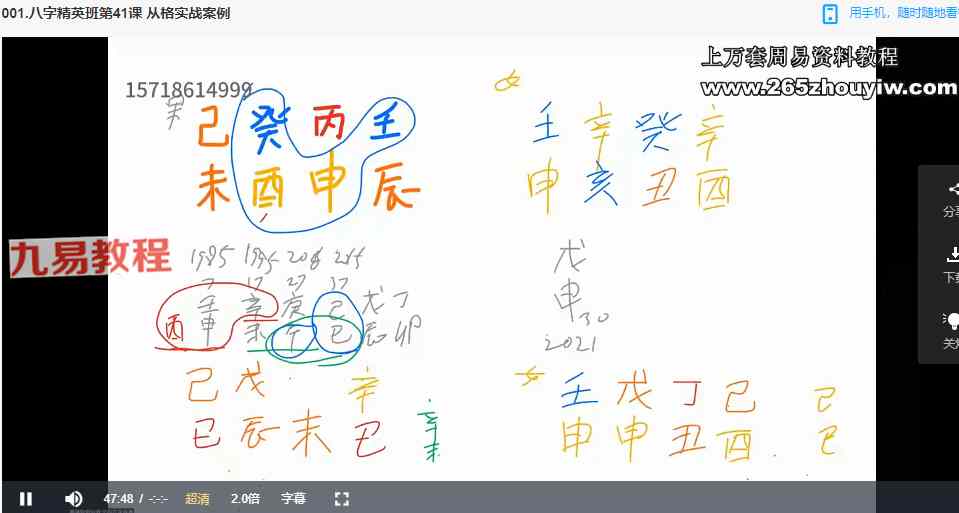 001.八字精英班第41课 从格实战案例
用手机，随时随地看
上万套周易资料教程
www.265zhouyiw.com
15718614999
己 癸 丙 壬
未 酉 申 辰
壬 辛 癸 辛
申 亥 丑 酉
九易教程
1985 1995
壬 辛 庚 己 戊 丁
丙 申 未 午 巳 辰 卯
戊
申 30
2021
己 戊 辛
巳 辰 未 巳
辛
未
壬 戊 丁 己 己
申 申 丑 酉 巳
分享
下载
47:48 / -:-:-
超清
2.0倍
字幕